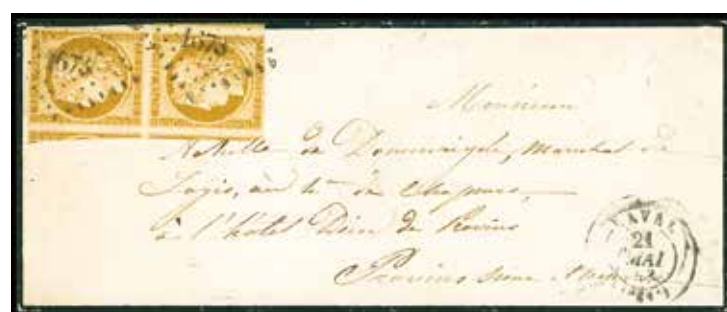 1675
1675
Monsieur
Achille de Dommaigné, Marechal de
Logis, au de
à l'hôtel Dieu de Provins
Provins Seine Marne
LAVAL
21
MAI